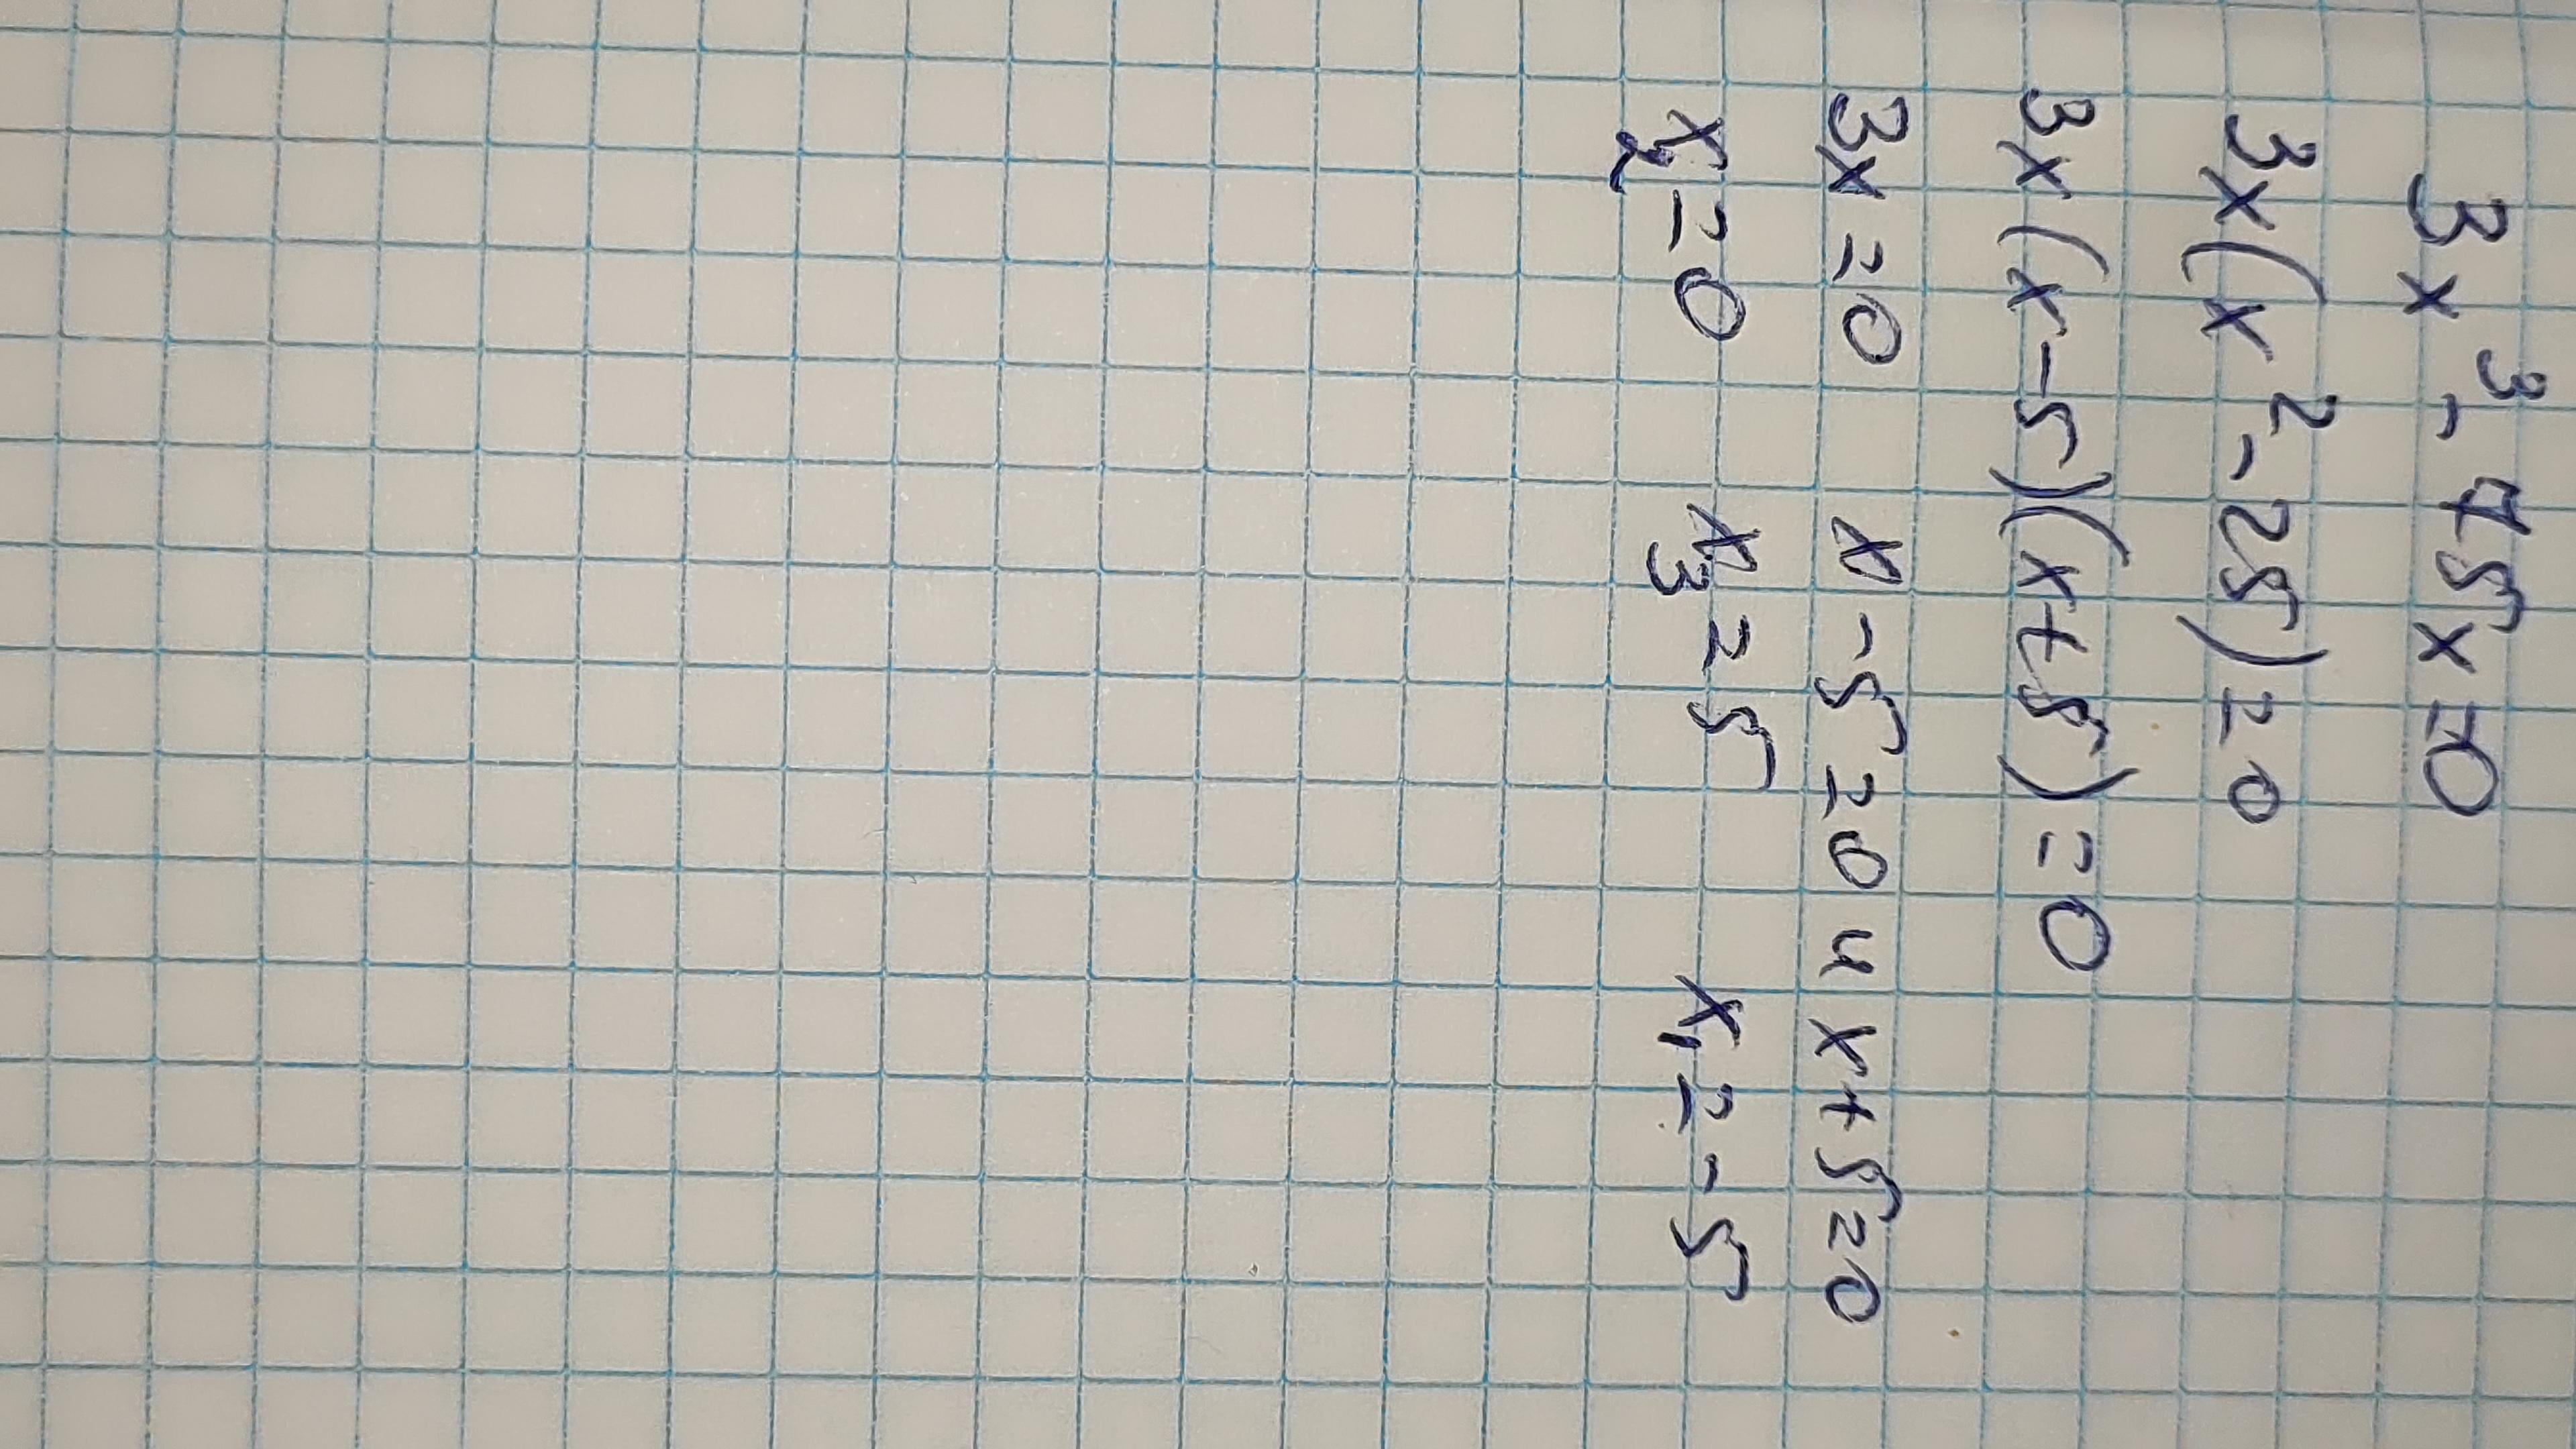 3x³ - 75x = 0
3x(x² - 25) = 0
3x(x - 5)(x + 5) = 0
3x = 0 x - 5 = 0 и x + 5 = 0
x₂ = 0 x₃ = 5 x₁ = -5